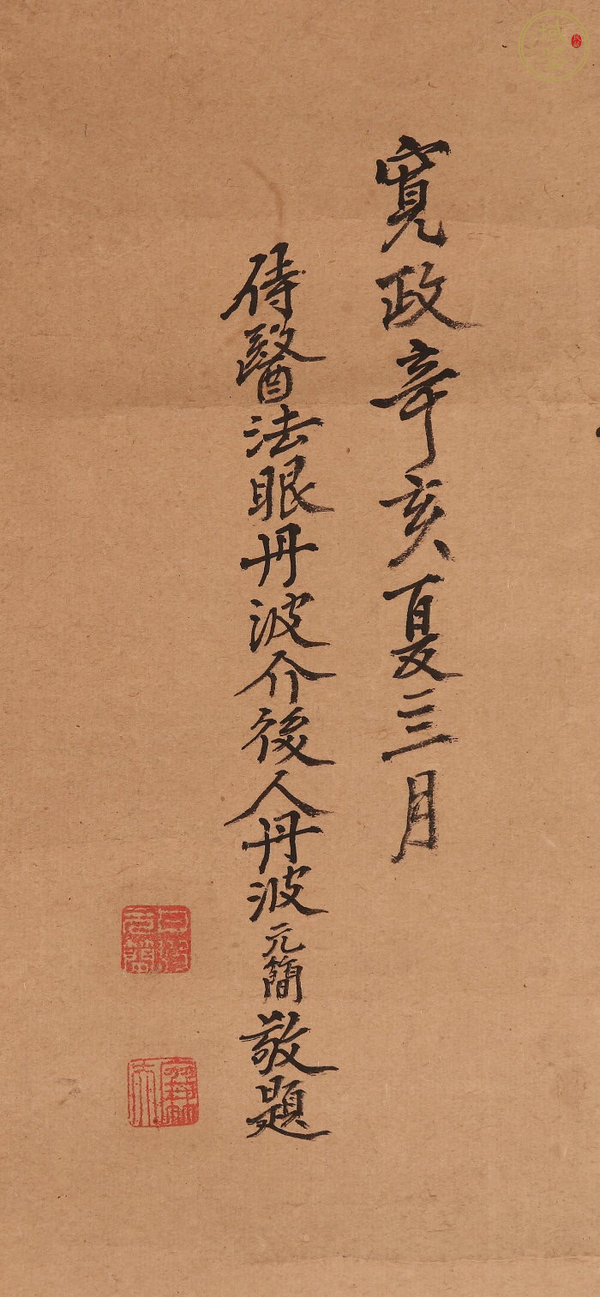 寛政辛亥夏三月
侍醫法眼丹波介後人丹波元簡敬題
丹波元簡